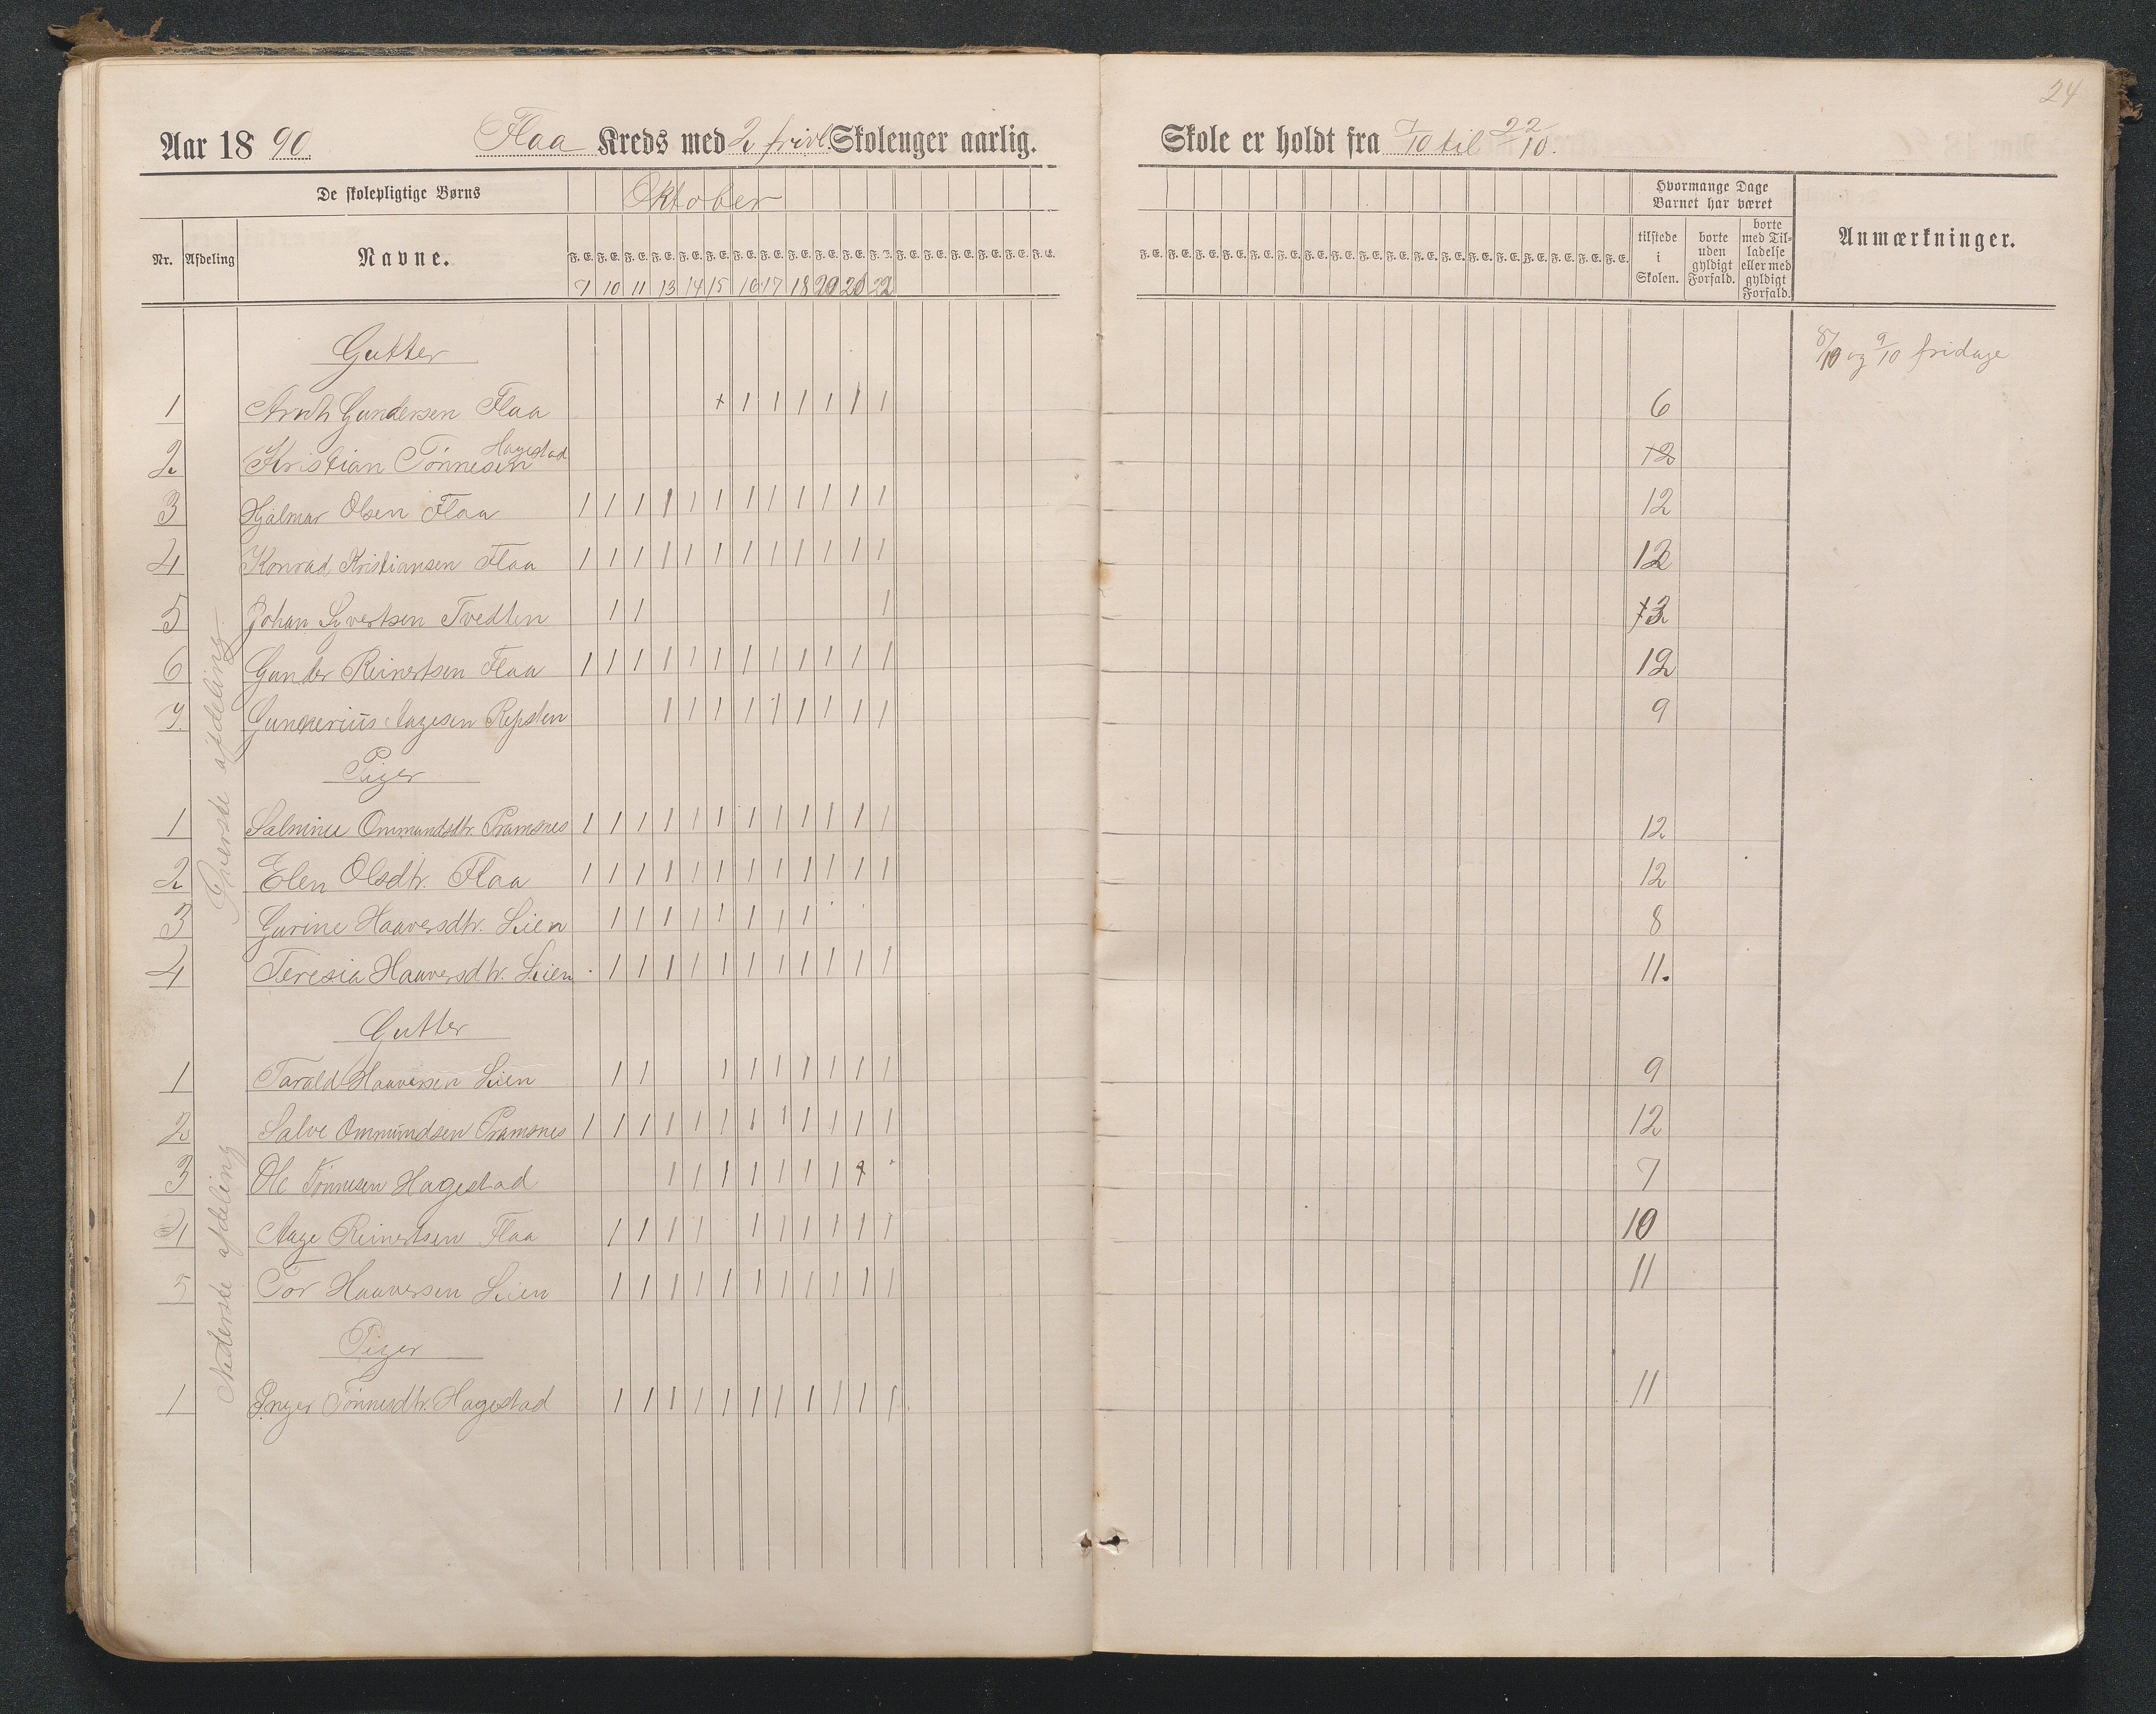 24
Aar 18 90. Flaa Kreds med 2 frivl. Skolenger aarlig. Skole er holdt fra 7/10 til 22/10.
De skolepligtige Børns Oktober Hvormange Dage Barnet har været
Nr. Afdeling Navne. F. E. F. E. F. E. F. E. F. E. F. E. F. E. F. E. F. E. F. E. F. E. tilstede i Skolen. borte uden gyldigt Forfald. borte med Tilladelse eller med gyldigt Forfald. Anmærkninger.
7 10 11 13 14 15 16 17 18 20 21 22
Øverste afdeling
Gutter 8/10 og 9/10 fridage
1 Gundersen Flaa + 1 1 1 1 1 1 6
2 Kristian Tønnesen Hagestad 12
3 Hjalmar Olsen Flaa 1 1 1 1 1 1 1 1 1 1 1 1 12
4 Konrad Kristiansen Flaa 1 1 1 1 1 1 1 1 1 1 1 1 12
5 Johan Syvertsen Tvedten 1 1 1 3
6 Gunder Reinertsen Flaa 1 1 1 1 1 1 1 1 1 1 1 1 12
7. Aagesen Repsten 1 1 1 1 1 1 1 1 1 9
Piger
1 Salmine Ommundsdtr. Pramsnes 1 1 1 1 1 1 1 1 1 1 1 1 12
2 Elen Olsdtr. Flaa 1 1 1 1 1 1 1 1 1 1 1 1 12
3 Gurine Haaversdtr. Lien 1 1 1 1 1 1 1 1 8
4 Teresia Haaversdtr. Lien 1 1 1 1 1 1 1 1 1 1 1 11.
Nederste afdeling
Gutter
1 Tarald Haaversen Lien 1 1 1 1 1 1 1 1 1 9
2 Salve Ommundsen Pramsnes 1 1 1 1 1 1 1 1 1 1 1 1 12
3 Ole Tønnesen Hagestad 1 1 1 1 1 1 1 7
4 Aage Reinertsen Flaa 1 1 1 1 1 1 1 1 1 1 10
5 Tor Haaversen Lien 1 1 1 1 1 1 1 1 1 1 1 11
Piger
1 Inger Tønnesdtr. Hagestad 1 1 1 1 1 1 1 1 1 1 1 11